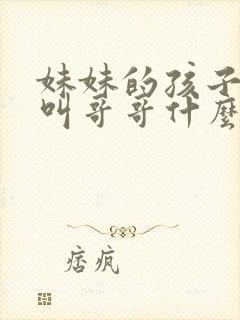 妹妹的孩子
叫哥哥什麼
痞疯